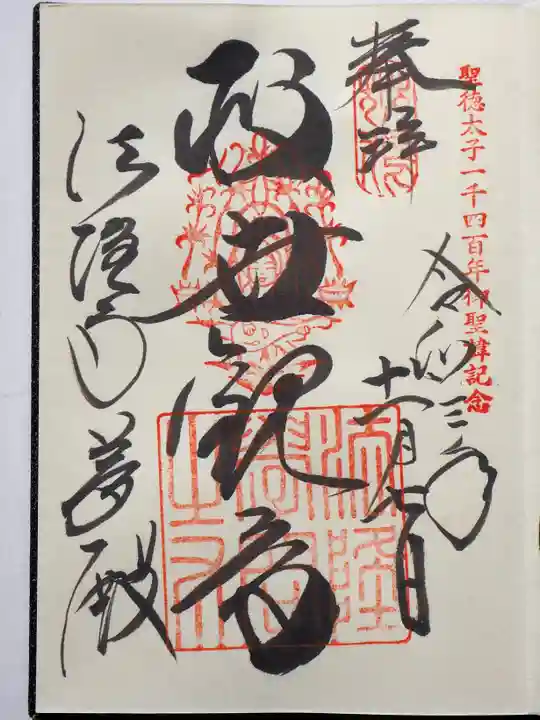 聖徳太子一千四百年御聖諱記念
奉拝
令和三年
十一月七日
救世観音
法隆寺夢殿